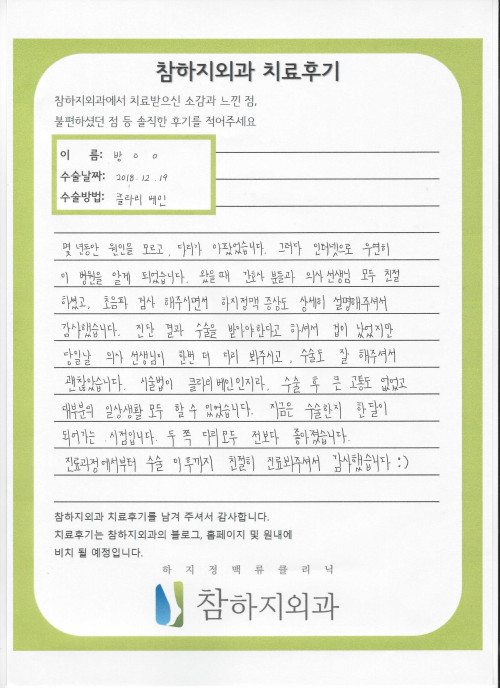 참하지외과 치료후기
참하지외과에서 치료받으신 소감과 느낀 점,
불편하셨던 점 등 솔직한 후기를 적어주세요
이 름: 방 ㅇ ㅇ
수술날짜: 2018. 12. 19
수술방법: 클라리 베인
몇 년동안 원인을 모르고, 다리가 아팠었습니다. 그러다 인터넷으로 우연히
이 병원을 알게 되었습니다. 왔을때 간호사 분들과 의사선생님 모두 친절
하셨고, 초음파 검사 해주시면서 하지정맥 증상도 상세히 설명해주셔서
감사했습니다. 진단 결과 수술을 받아야한다고 하셔서 겁이 났었지만
당일날 의사 선생님이 한번 더 다리 봐주시고, 수술도 잘 해주셔서
괜찮았습니다. 시술법이 클라리베인인지라, 수술 후 큰 고통도 없었고
대부분의 일상생활 모두 할 수 있었습니다. 지금은 수술한지 한달이
되어가는 시점입니다. 두 쪽 다리모두 전보다 좋아졌습니다.
진료과정에서부터 수술 이후까지 친절히 진료봐주셔서 감사했습니다 :)
참하지외과 치료후기를 남겨 주셔서 감사합니다.
치료후기는 참하지외과의 블로그, 홈페이지 및 원내에
비치 될 예정입니다.
하지정맥류클리닉
참하지외과